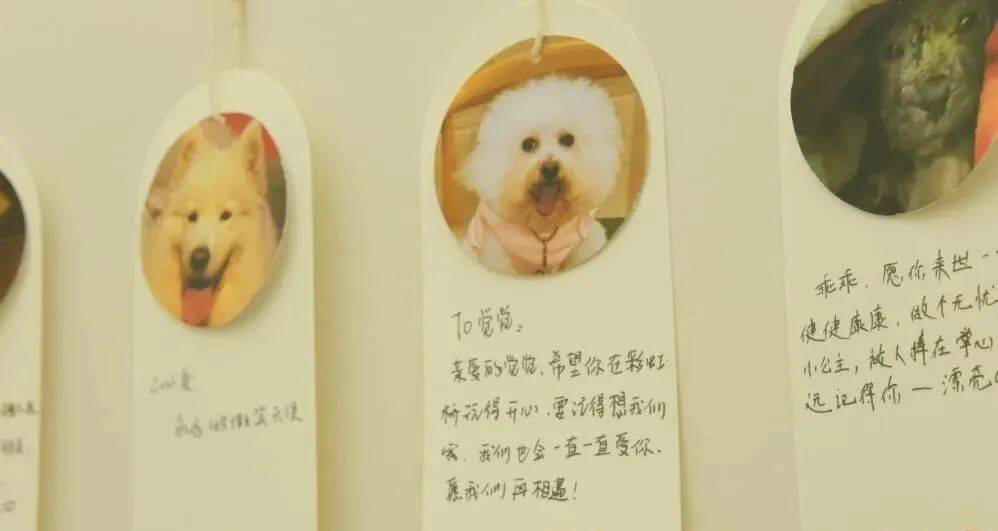 永远的微笑天使
To 觉觉:
亲爱的觉觉,希望你在彩虹
桥玩得开心,要记得想我们
哦,我们也会一直一直爱你、
愿我们再相遇!
乖乖,愿你来世一
健健康康,做个无忧
小公主,被人捧在掌心
远记得你—漂亮